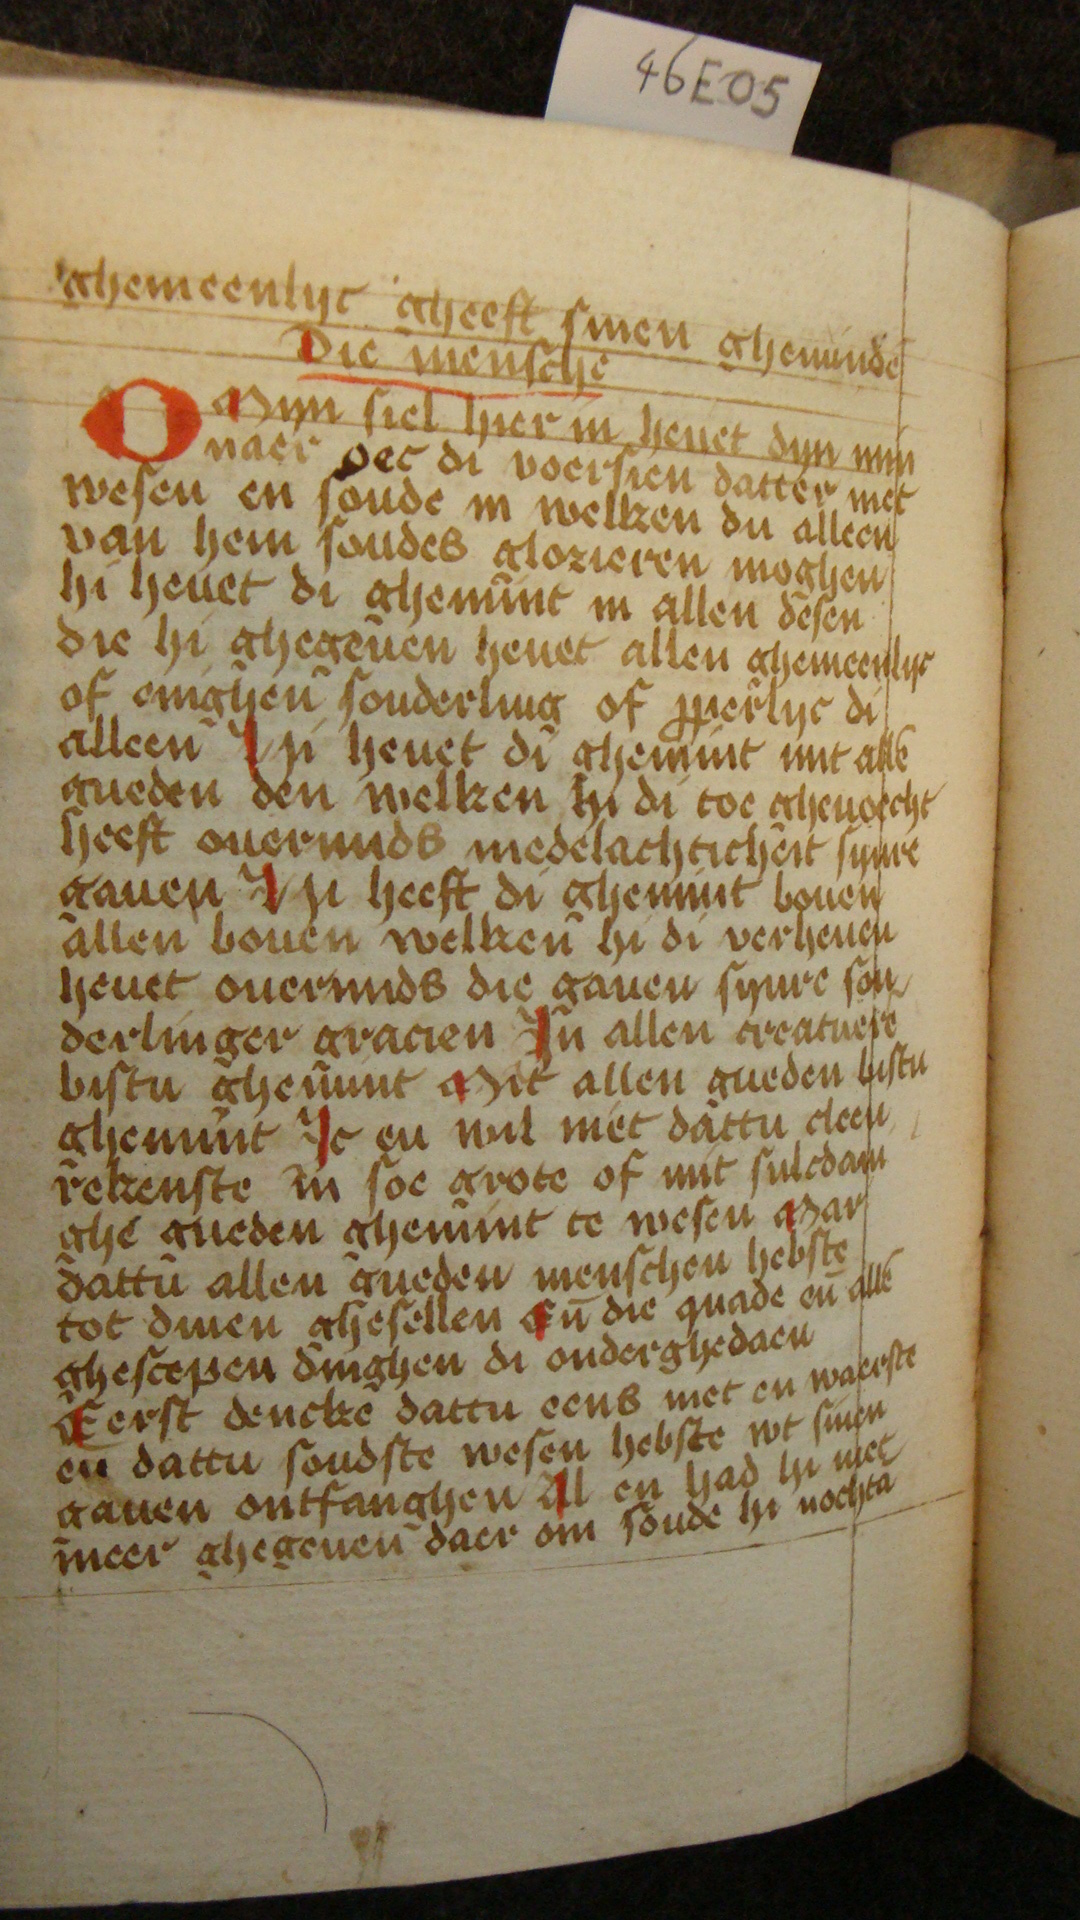 46E05
ghemeenlyc gheeft sinen ghemindē
Die mensche
O Myn siel hier in heuet dyn min
naer oec di voersien datter niet
wesen en soude in welken du alleen
van hem soudes glorieren moghen
hi heuet di ghemint in allen desen
die hi ghegeuen heuet allen ghemeenlyc
of enighen sonderling of pperlyc di
alleen Hi heuet di ghemint mit allē
gueden den welken hi di toe gheuoecht
heeft ouermids medelachticheit synre
gauen Hi heeft di ghemint bouen
allen bouen welken hi di verheuen
heuet ouermids die gauen synre son
derlinger gracien In allen creaturē
bistu ghemint Mit allen gueden bistu
ghemint Ic en wil niet dattu cleen
rekenste in soe grote of mit sulcdani
ghe gueden ghemint te wesen Mar
dattu allen gueden menschen hebste
tot dinen ghesellen Eñ die quade eñ allē
ghescepen dinghen di onderghedaen
Eerst dencke dattu eens niet en waerste
eñ dattu soudste wesen hebste wt sinen
gauen ontfanghen Al en had hi niet
meer ghegeuen daer om soude hi nochtā